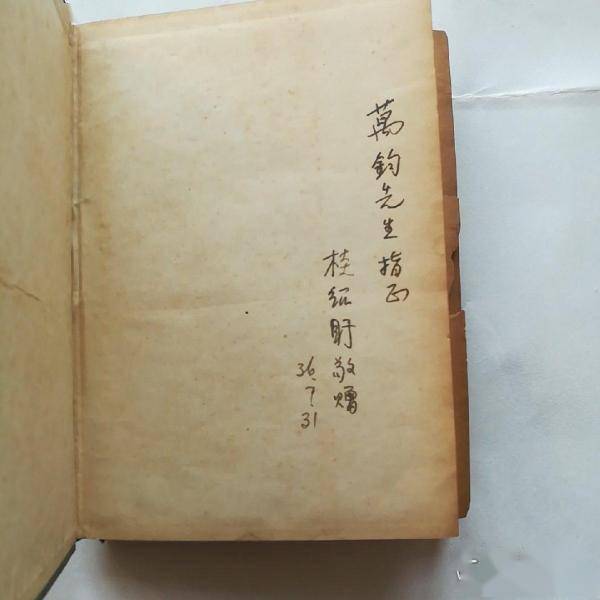 萬鈞先生指正
桂紹盱敬贈
36.7.31